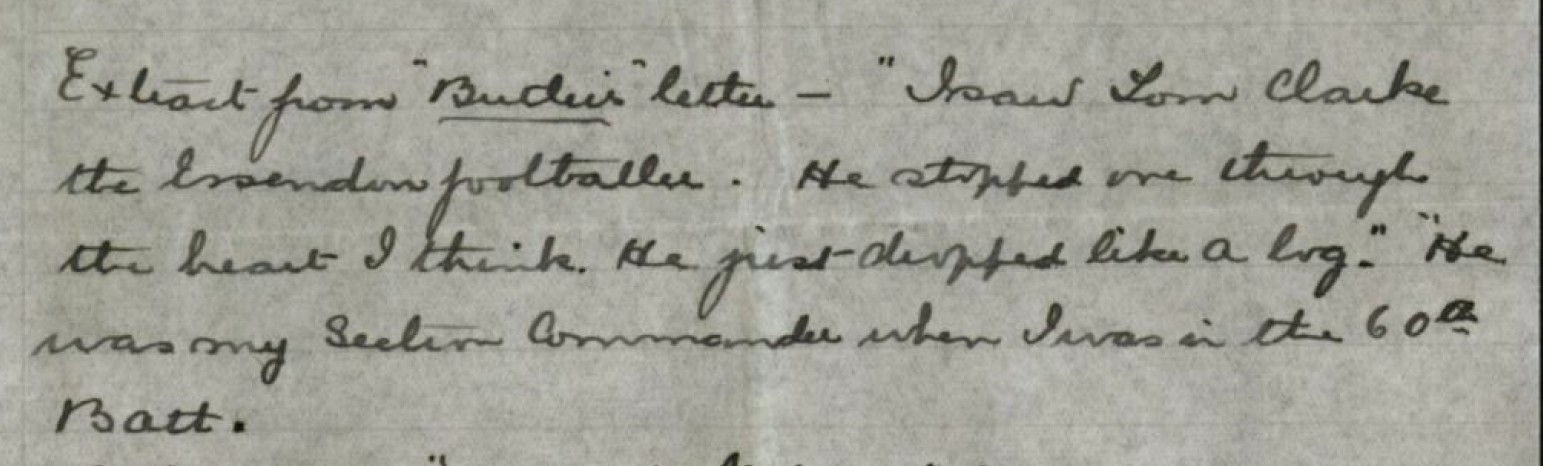 Extract from "Butler's" letter – "I saw Tom Clarke
the Essendon footballer. He stopped one through
the heart I think. He just dropped like a log." "He
was my Section Commander when I was in the 60th
Batt.